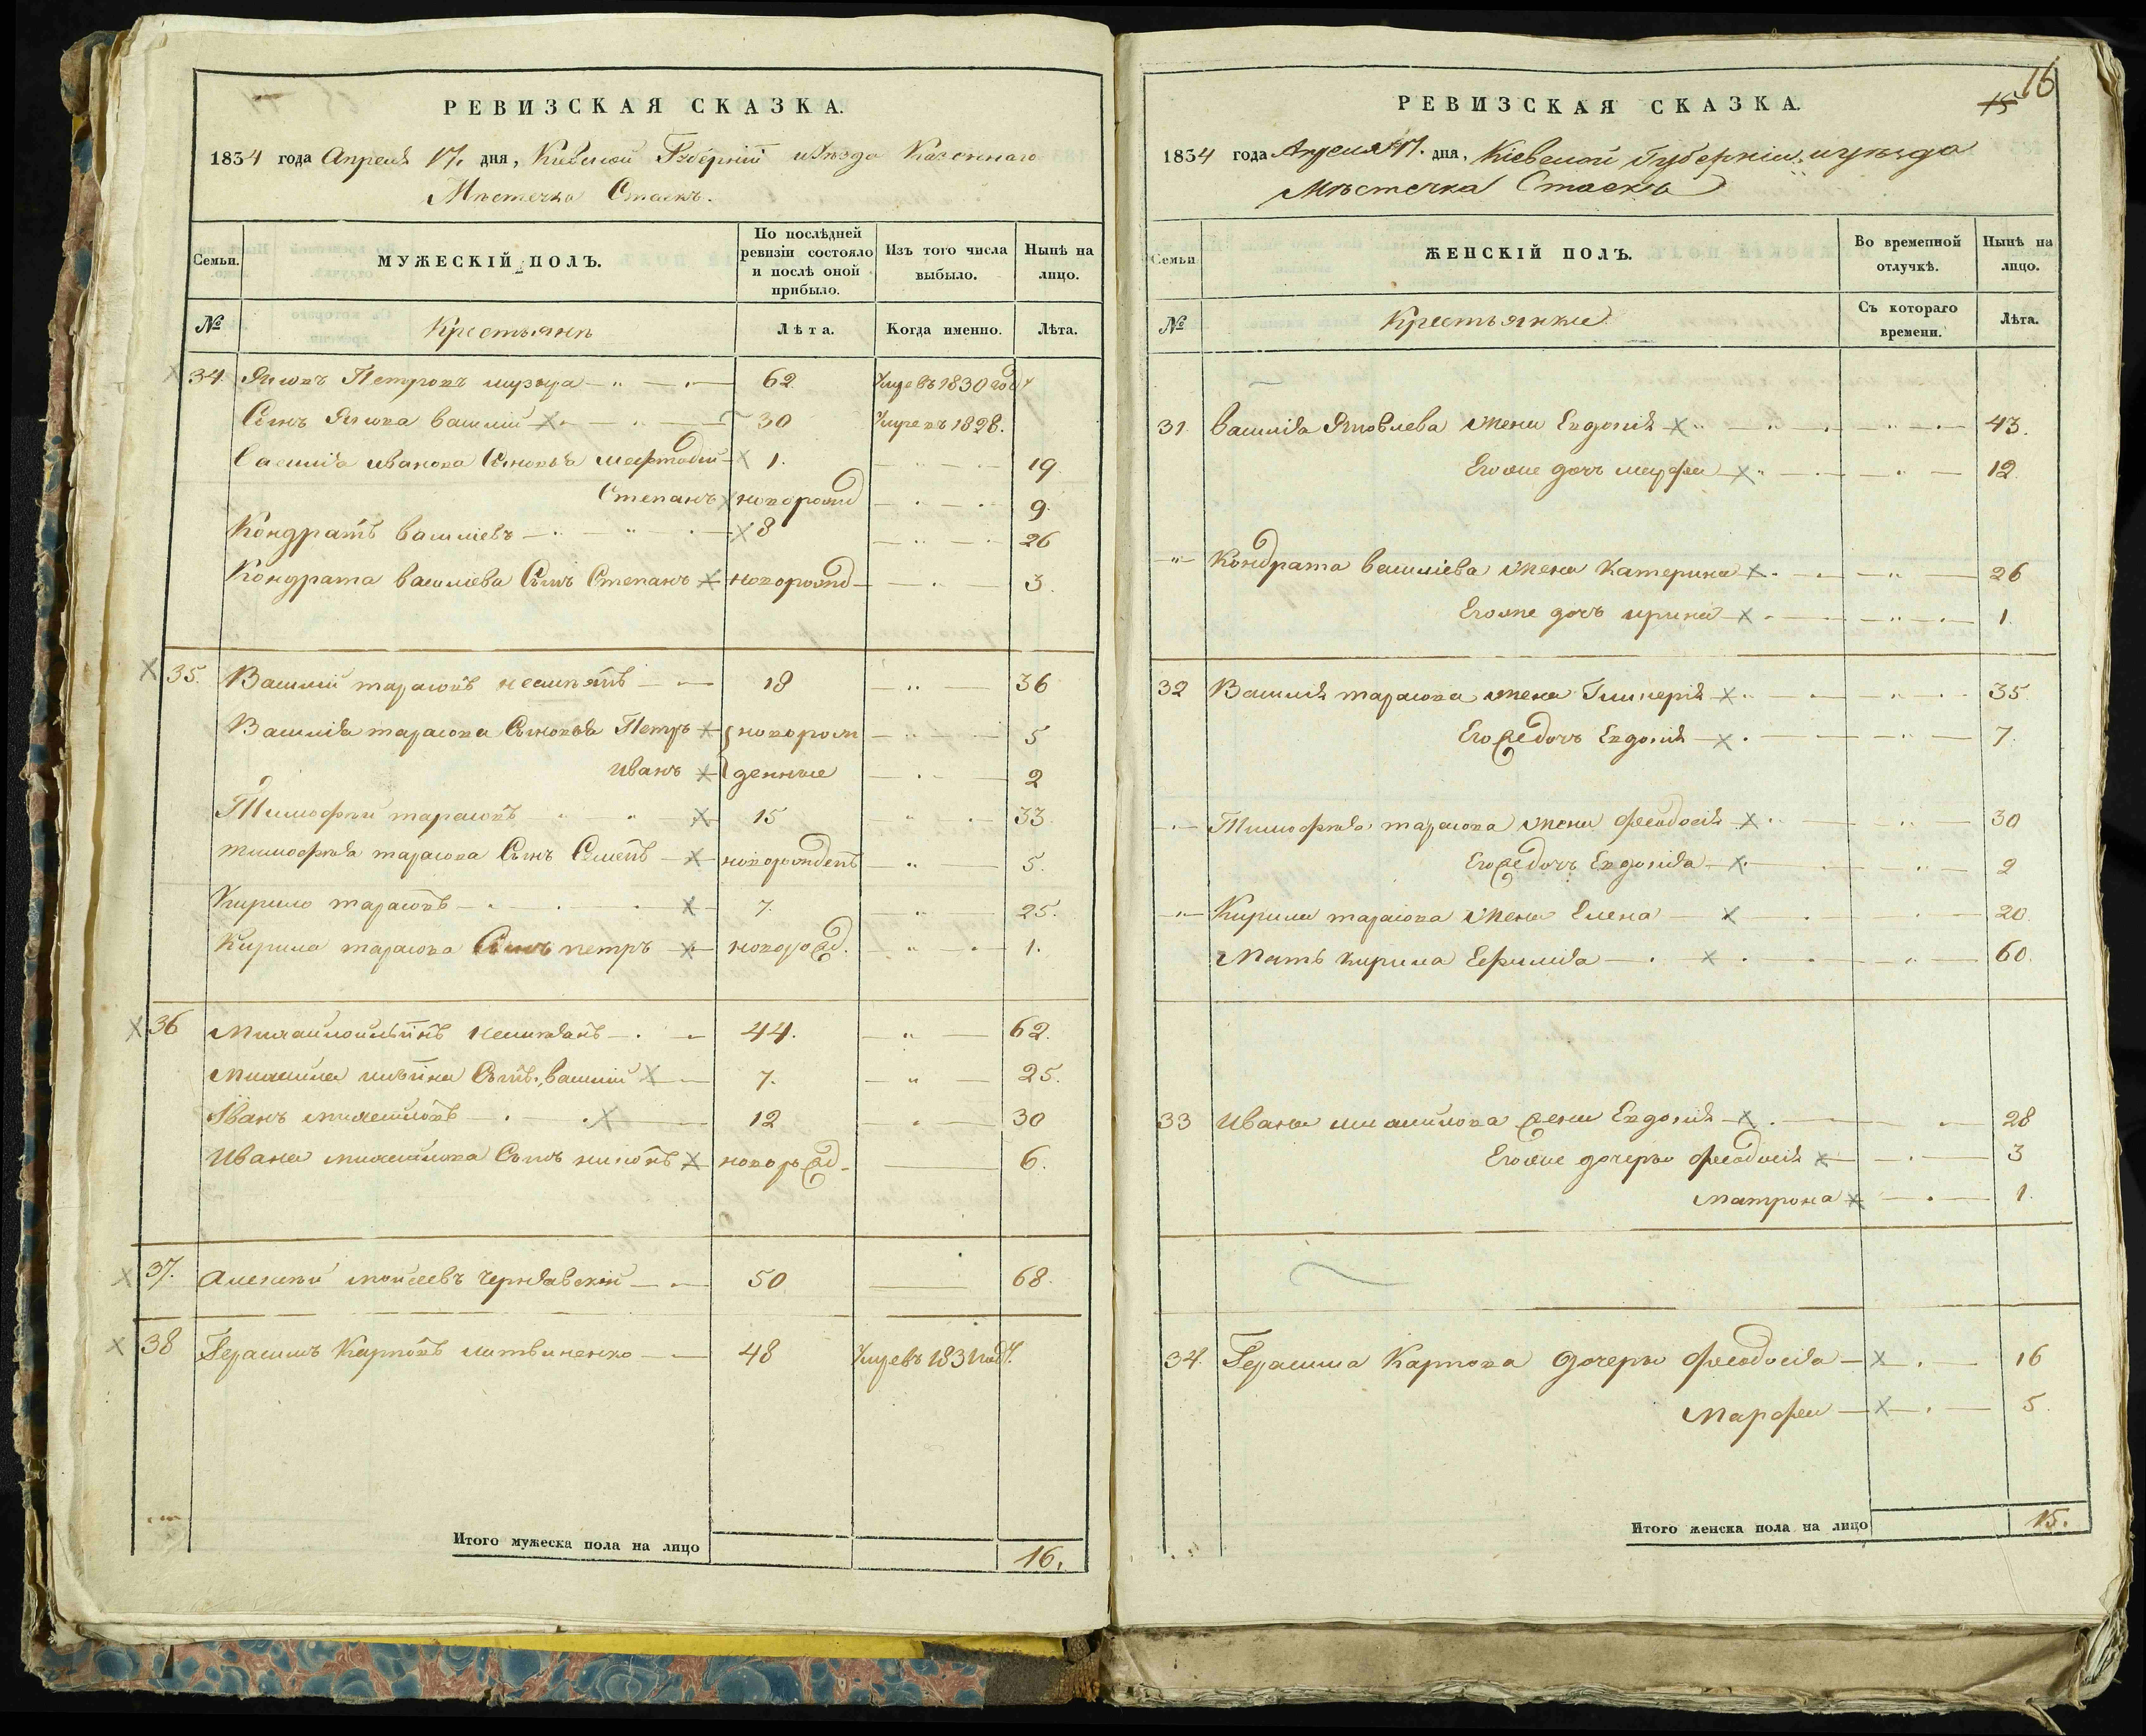 РЕВИЗСКАЯ СКАЗКА.
1834 года Апреля 17. дня, Киевской Губернiи и уѣзда Казеннаго
Мѣстечка Стаекъ.
Семьи.
МУЖЕСКІЙ ПОЛЪ.
По послѣдней ревизіи состояло и послѣ оной прибыло.
Изъ того числа выбыло.
Нынѣ на лицо.
№
Крестьянѣ
Лѣта.
Когда именно.
Лѣта.
34. Яковъ Петровъ 62 Умре въ 1830 году
Сынъ Якова Василий 30 Умре въ 1828.
Василія Сыновья 1. 19.
Степанъ новорожд 9.
Кондратъ Василіевъ 8 26
Кондрата Василіева Сынъ Степанъ новорожд 3.
35. Василий Тарасовъ 18 36
Василія Тарасова Сыновья Петръ новорож 5
Иванъ денные 2
Тимофѣй Тарасовъ 15 33
Тимофѣя Тарасова Сынъ Семенъ новорожденъ 5.
Кирило Тарасовъ 7. 25.
Кирила Тарасова Сынъ Петръ новорожд. 1.
36 44. 62.
Михаила Ильина Сынъ Василий 7. 25.
Иванъ Михайловъ 12 30
Ивана Михайлова Сынъ новорожд 6.
37. Алексѣй Моисеевъ Чернявскій 50 68.
38 Герасимъ Карповъ Литвиненко 48 Умре въ 1831 году.
Итого мужеска пола на лицо 16.
16
15
РЕВИЗСКАЯ СКАЗКА.
1834 года Апреля 17. дня, Кіевской Губерніи, и уѣзда
Мѣстечка Стаекъ
Семьи
ЖЕНСКІЙ ПОЛЪ.
Во временной отлучкѣ.
Нынѣ на лицо.
№
Крестьянки
Съ котораго времени.
Лѣта.
31. Василія Яковлева жена Евдокія 43.
Его же дочь Марфа 12.
Кондрата Василіева жена Катерина 26
Его же дочь Ирина 1.
32 Василія Тарасова жена Гликерія 35.
Его же дочь Евдокія 7.
Тимофѣя Тарасова жена Феодосія 30
Его же дочь Евдокія 2
Кирила Тарасова жена Елена 20.
Мать Кирила Ефимія 60.
33 Ивана Михайлова жена Евдокія 28
Его же дочеръи Феодосія 3
Матрона 1.
34. Герасима Карпова дочеръи Феодосія 16
Марфа 5.
Итого женска пола на лицо 15.